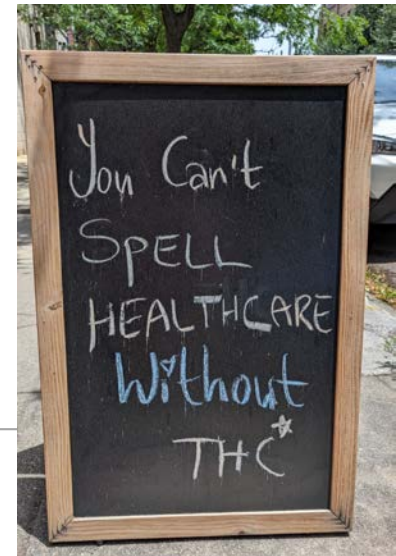 You Can't
SPELL
HEALTHCARE
Without
THC